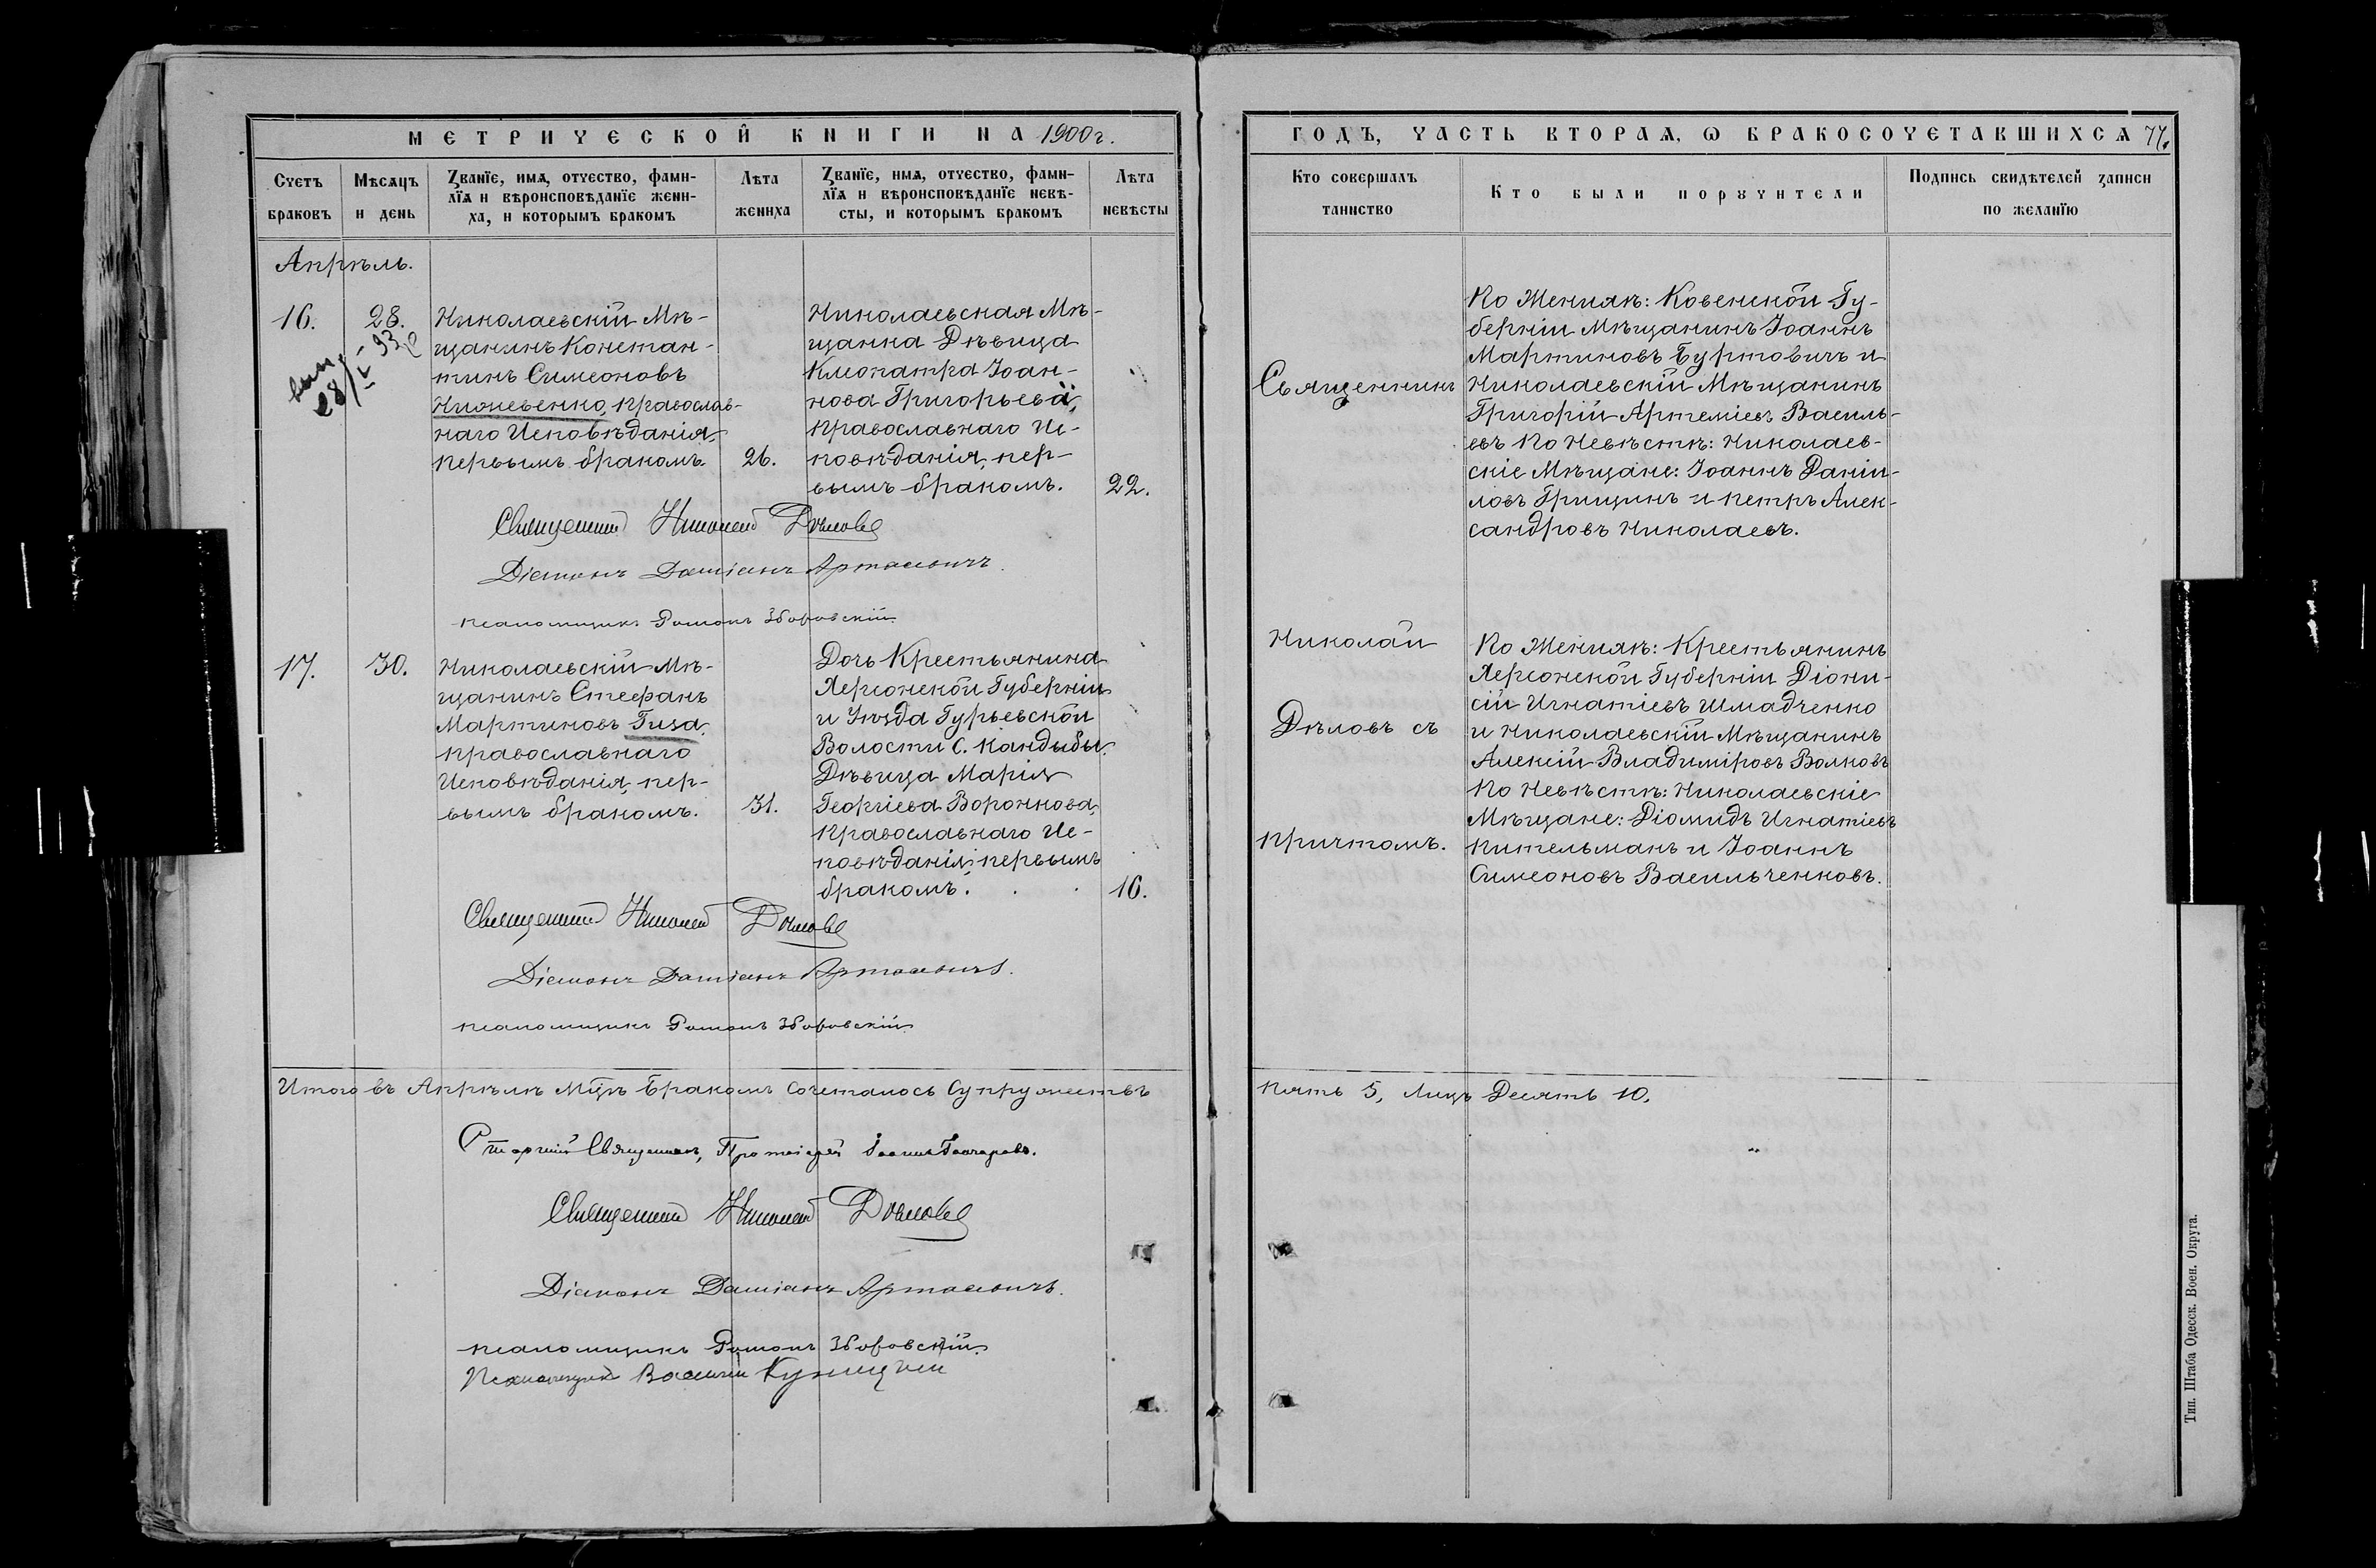 МЕТРИЧЕСКОЙ КНИГИ НА 1900 г.
Счетъ браковъ
Мѣсяцъ и день
Званїе, имя, отчество, фамилїя и вѣроисповѣданїе жениха, и которымъ бракомъ
Лѣта жениха
Званїе, имя, отчество, фамилїя и вѣроисповѣданїе невѣсты, и которымъ бракомъ
Лѣта невѣсты
Апрѣль.
16.
28.
28/IV 93
Николаевскій Мѣ-
щанинъ Констан-
тинъ Симеоновъ
православ-
наго Исповѣданія,
первымъ бракомъ.
26.
Николаевская Мѣ-
щанка Дѣвица
Клеопатра Іоан-
нова Григорьева,
Православнаго Ис-
повѣданія, пер-
вымъ бракомъ.
22.
Священникъ Николай Дѣловъ
Діаконъ Даміанъ Артасевичъ.
псаломщикъ Романъ Зборовскій.
17.
30.
Николаевскій Мѣ-
щанинъ Стефанъ
Мартиновъ Гиза,
православнаго
Исповѣданія, пер-
вымъ бракомъ.
31.
Дочь Крестьянина
Херсонской Губерніи
и Уѣзда Гурьевской
Волости С. Кандыбы,
Дѣвица Марія
Георгіева Воронкова,
Православнаго Ис-
повѣданія, первымъ
бракомъ.
16.
Священникъ Николай Дѣловъ
Діаконъ Даміанъ Артасевичъ.
псаломщикъ Романъ Зборовскій.
Итого въ Апрѣлѣ Мц̃ѣ бракомъ сочеталось Супружествъ
Священникъ, Протоіерей Іоаннъ Гончаровъ.
Священникъ Николай Дѣловъ
Діаконъ Даміанъ Артасевичъ.
псаломщикъ Романъ Зборовскій.
Псаломщикъ Василій
ГОДЪ, ЧАСТЬ ВТОРАЯ, Ѡ БРАКОСОЧЕТАВШИХСЯ 77.
Кто совершалъ таинство
Кто были поручители
Подпись свидѣтелей записи по желанїю
Священникъ
Николай
Дѣловъ съ
Причтомъ.
По Женихѣ: Ковенской Гу-
берніи Мѣщанинъ Іоаннъ
Мартиновъ Буртовичъ и
Николаевскій Мѣщанинъ
Григорій Артеміевъ Василь-
евъ По Невѣстѣ: Николаев-
скіе Мѣщане: Іоаннъ Даніи-
ловъ Грищинъ и Петръ Алек-
сандровъ Николаевъ.
По Женихѣ: Крестьянинъ
Херсонской Губерніи Діони-
сій Игнатіевъ Шмадченко
и Николаевскій Мѣщанинъ
Алексій Владиміровъ Волковъ
По Невѣстѣ: Николаевскіе
Мѣщане: Діомидъ Игнатіевъ
Кительманъ и Іоаннъ
Симеоновъ Васильченковъ.
Пять 5, Лицъ Десять 10.
Тип. Штаба Одесск. Воен. Округа.